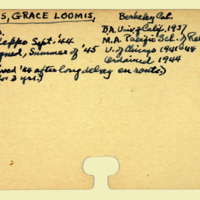 S, GRACE LOOMIS, Berkeley Cal.
B.A. Univ of Calif. 1937
leppo Sept. '44 M.A. Pacific Sch. of Rel
gned, Summer of '45 U. of Chicago 1941-44
Ordained 1944
ved '44 after long delay en route)
for 3 yrs.)